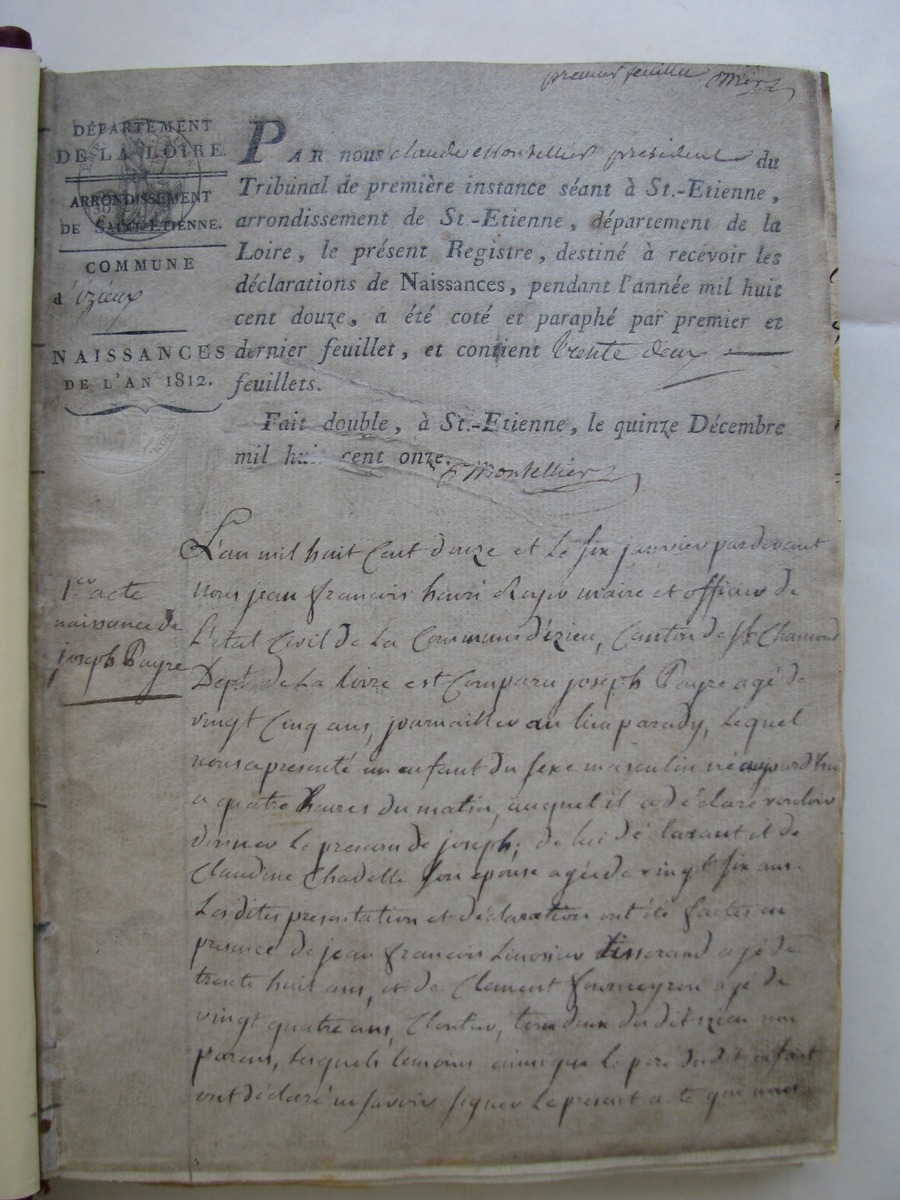 premier feuillet
DÉPARTEMENT
DE LA LOIRE.
ARRONDISSEMENT
DE SAINT-ETIENNE.
COMMUNE
d'izieux
NAISSANCES
DE L'AN 1812.
PAR nous claude Montellier president du
Tribunal de première instance séant à St.-Etienne,
arrondissement de St.-Etienne, département de la
Loire, le présent Registre, destiné à recevoir les
déclarations de Naissances, pendant l'année mil huit
cent douze, a été coté et paraphé par premier et
dernier feuillet, et contient trente deux
feuillets.
Fait double, à St.-Etienne, le quinze Décembre
mil huit cent onze.
Montellier
1er acte
naissance de
joseph Payre
L'an mil huit Cent douze et le six janvier pardevant
nous jean françois henri Royer maire et officier de
L'état Civil de La Commune d'izieu, Canton de St Chamond
Dept de La Loire est Comparu joseph Payre agé de
vingt Cinq ans, journaillier au lieu parady, Lequel
nous a presenté un enfant du sexe masculin né aujourd'hui
a quatre heures du matin, auquel il a déclaré vouloir
donner Le prenom de joseph, de lui déclarant et de
Claudine Chadelle son épouse agée de vingt six ans.
Les dites presentation et déclaration ont été faites en
presence de jean françois Limosier tisserand agé de
trente huit ans, et de Clement fourneyron agé de
vingt quatre ans, Cloutier, tous deux du dit izieu non
parens, Lesquels temoins ainsi que le pere du dit enfant
ont déclaré ne savoir signer Le present acte que nous